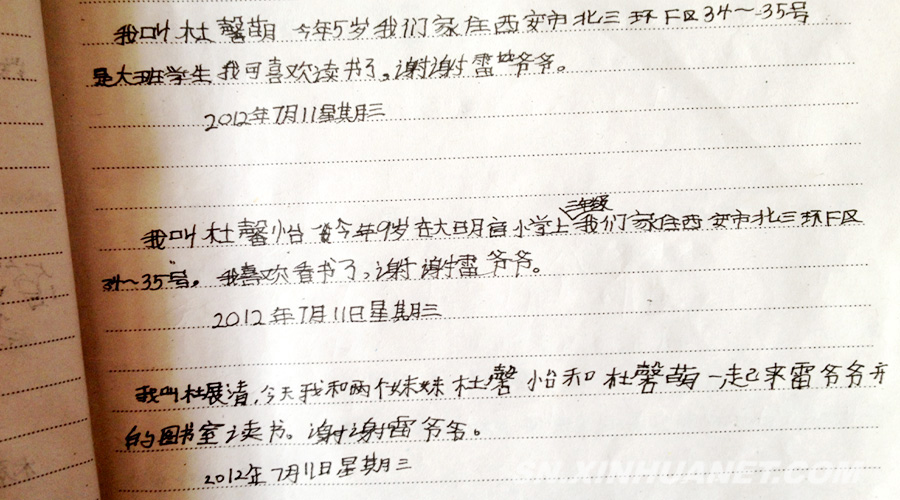 我叫杜馨萌 今年5岁我们家住西安市北三环F区34～35号
是大班学生 我可喜欢读书了,谢谢雷爷爷。
2012年7月11星期三
三年级
我叫杜馨怡 今年9岁在大明宫小学上我们家住西安市北三环F区
34～35号。我喜欢看书了,谢谢雷爷爷。
2012年7月11日星期三
我叫杜展清,今天我和两个妹妹杜馨怡和杜馨萌一起来雷爷爷开
的图书室读书。谢谢雷爷爷。
2012年7月11日星期三
SN.XINHUANET.COM